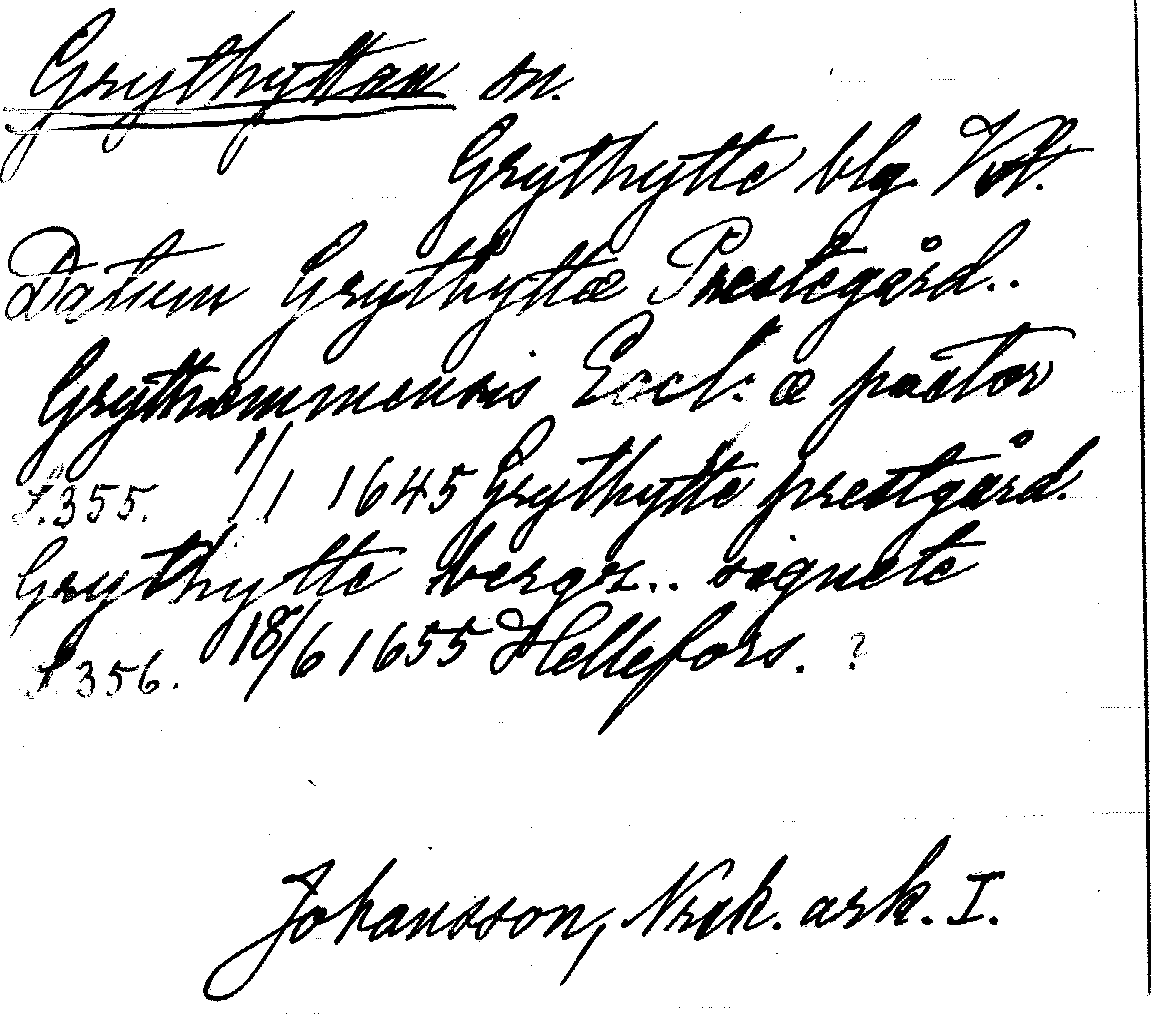 Grythyttan sn.
Grythytte blg. Vstl.
Datum Grythyttæ Prestegård..
Grythœmmensis Eccl: æ pastor
S.355. 1/1 1645 Grythytte prestgård.
Grythytte bergz.. signete
S 356. 18/6 1655 Hellefors. ?
Johansson, Nrik. ark. I.